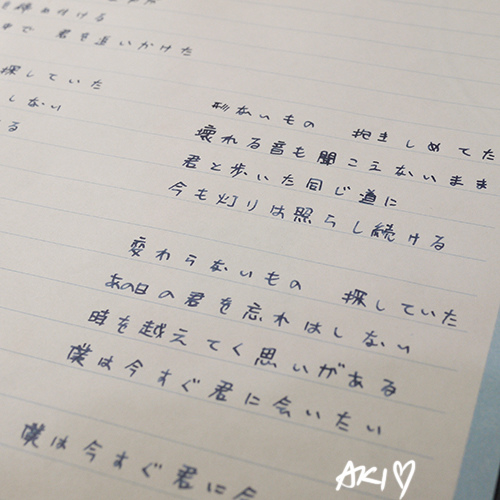 君を追いかけた
探していた
しない
る
形ないもの 抱きしめてた
壊れる音も聞こえないまま
君と歩いた同じ道に
今も灯りは照らし続ける
変わらないもの 探していた
あの日の君を忘れはしない
時を越えてく思いがある
僕は今すぐ君に会いたい
僕は今すぐ君に
AKI♡